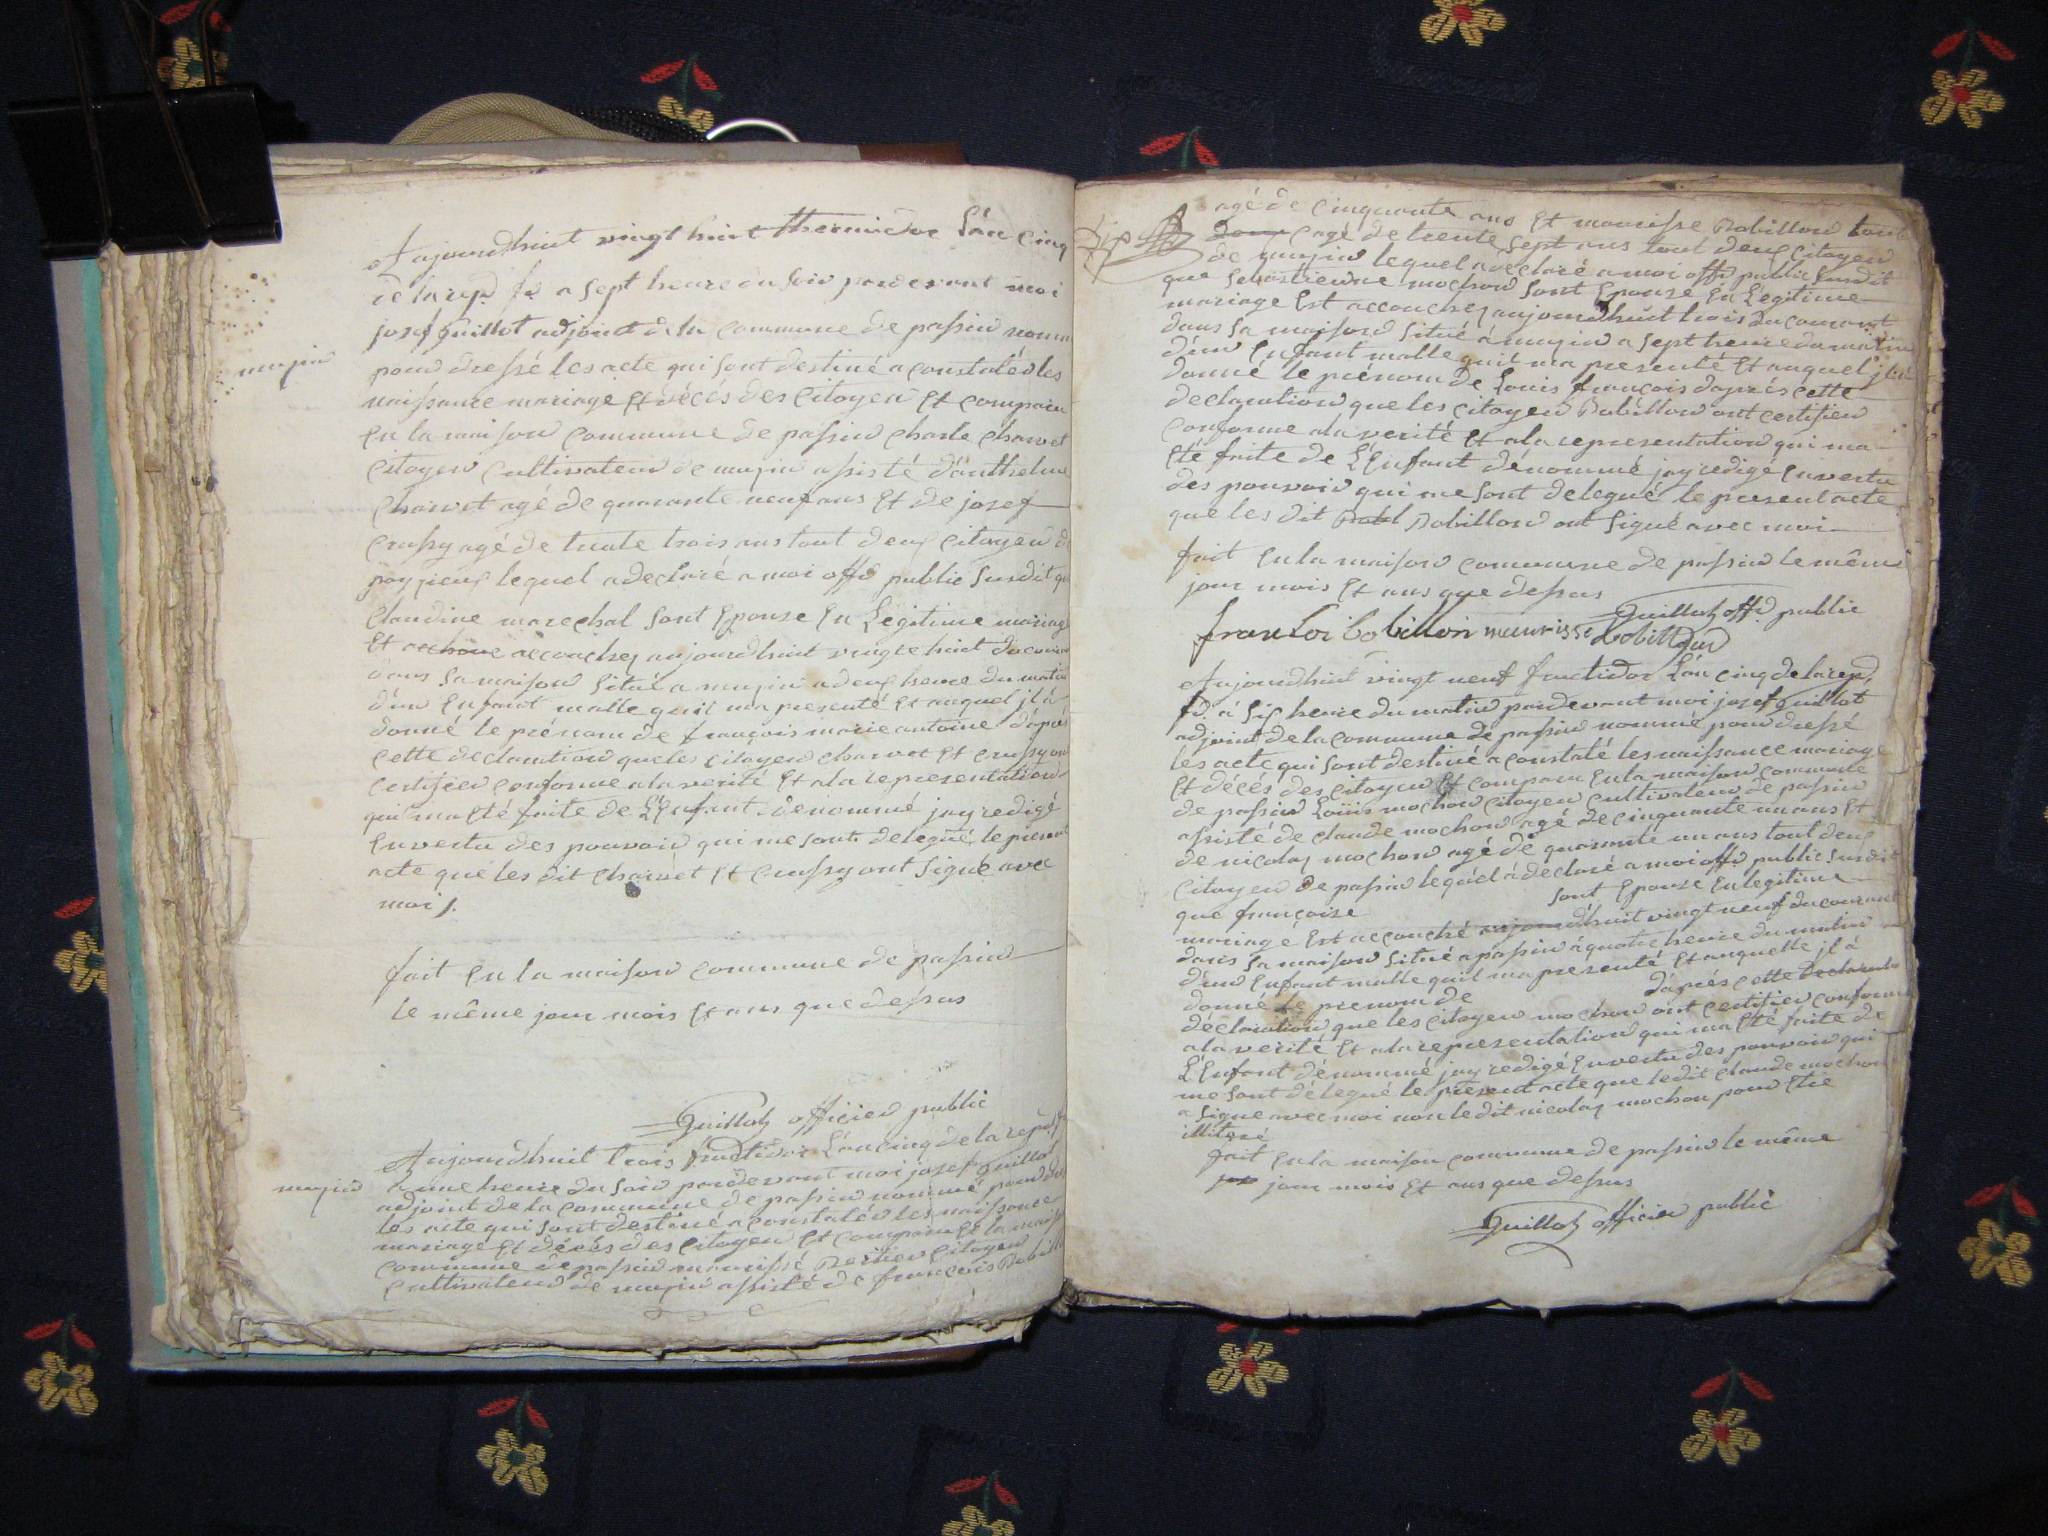 Aujourdhuit vingt huit thermidor L'án cinq
de la rep. fr a sept heure du soir pardevant moi
josef guillot adjoint de la commune de passin nomm
mujin
pour dressé les acte qui sont destiné a constatér les
naissance mariage Et décés des Citoyen Et comparu
En la maison commune de passin Charle Charvet
Citoyen cultivateur de mujin assisté d'anthelme
Charvet agé de quarante neuf ans Et de josef
Crussy agé de trente trois ans tout deux Citoyen d
lequel a declaré a moi offr public Susdit q
Claudine marechal sont Epouze En Legitime mariag
Et accouchez aujourdhuit vingt huit du couran
dans sa maison situé a mujin a deux heure du matin
d'un Enfant malle quil ma presenté Et auquel jl á
donné le prénom de françois marie antoine d'aprés
cette declaration que les citoyen charvet Et crussy on
certifier conforme a la verité Et a la representation
qui ma Eté faite de L'Enfant denommé jay redigé
En vertu des pouvoir qui me sont delegué le presant
acte que les dit charvet Et Crussy ont signé avec
moi
fait En la maison commune de passin
le même jour mois Et ans que dessus
Guillot officier public
Aujourdhuit trois fructidor L'an cinq de la rep. fr
mujin a une heure du soir pardevant moi josef guillot
adjoint de la commune de passin nommé pour dre
les acte qui sont destiné a constatér les naissance
mariage Et décés des citoyen Et comparu En la maiso
commune de passin maurisse citoyen
cultivateur de mujin assisté de françois Bobill
agé de cinquante ans Et maurisse Bobillon tout
agé de trente sept ans tout deux citoyen
de mujin lequel a declaré a moi offr public susdit
que Sebastienne mochon sont Epouze En Legitime
mariage Est accouchez aujourdhuit trois du courant
dans sa maison situé á mujin a sept heure du matin
d'un Enfant malle quil ma presenté Et auquel jl á
donné le prénom de Louis françois daprés cette
declaration que les citoyen Bobillon ont certifier
conforme a la verité Et a la representation qui ma
Eté faite de L'Enfant dénommé jay redigé En vertu
des pouvoir qui me sont delegué le present acte
que les dit Bobillon ont signé avec moi
fait En la maison commune de passin le même
jour mois Et ans que dessus
Guillot offr. public
franSoi bobillon maurisse bobillon
Aujourdhuit vingt neuf fructidor L'an cinq de la rep.
fr. á six heure du matin pardevant moi josef guillot
adjoint de la commune de passin nommé pour dressé
les acte qui sont destiné a constaté les naissance mariage
Et décés des citoyen Et comparu En la maison commune
de passin Loüis mochon citoyen cultivateur de passin
assisté de claude mochon agé de cinquante un ans Et
de nicolas mochon agé de quarante un ans tout deux
Citoyen de passin lequel á declaré a moi offr public susdit
que françoise sont Epouze En legitime
mariagé Est accouché aujourdhuit vingt neuf du courant
dans sa maison situé a passin á quatre heure du matin
d'un Enfant malle quil ma presenté Et auquelle jl á
donné le prenom de d'aprés cette
déclaration que les citoyen mochon ont certifier conforme
a la verité Et a la representation qui ma Eté faite de
L'Enfant dénommé jay redigé En vertu des pouvoir qui
me sont délegué le présent acte que ledit claude mochon
a signe avec moi non ledit nicolas mochon pour Etre
illiteré
fait En la maison commune de passin le même
jour mois Et ans que dessus
Guillot officier public